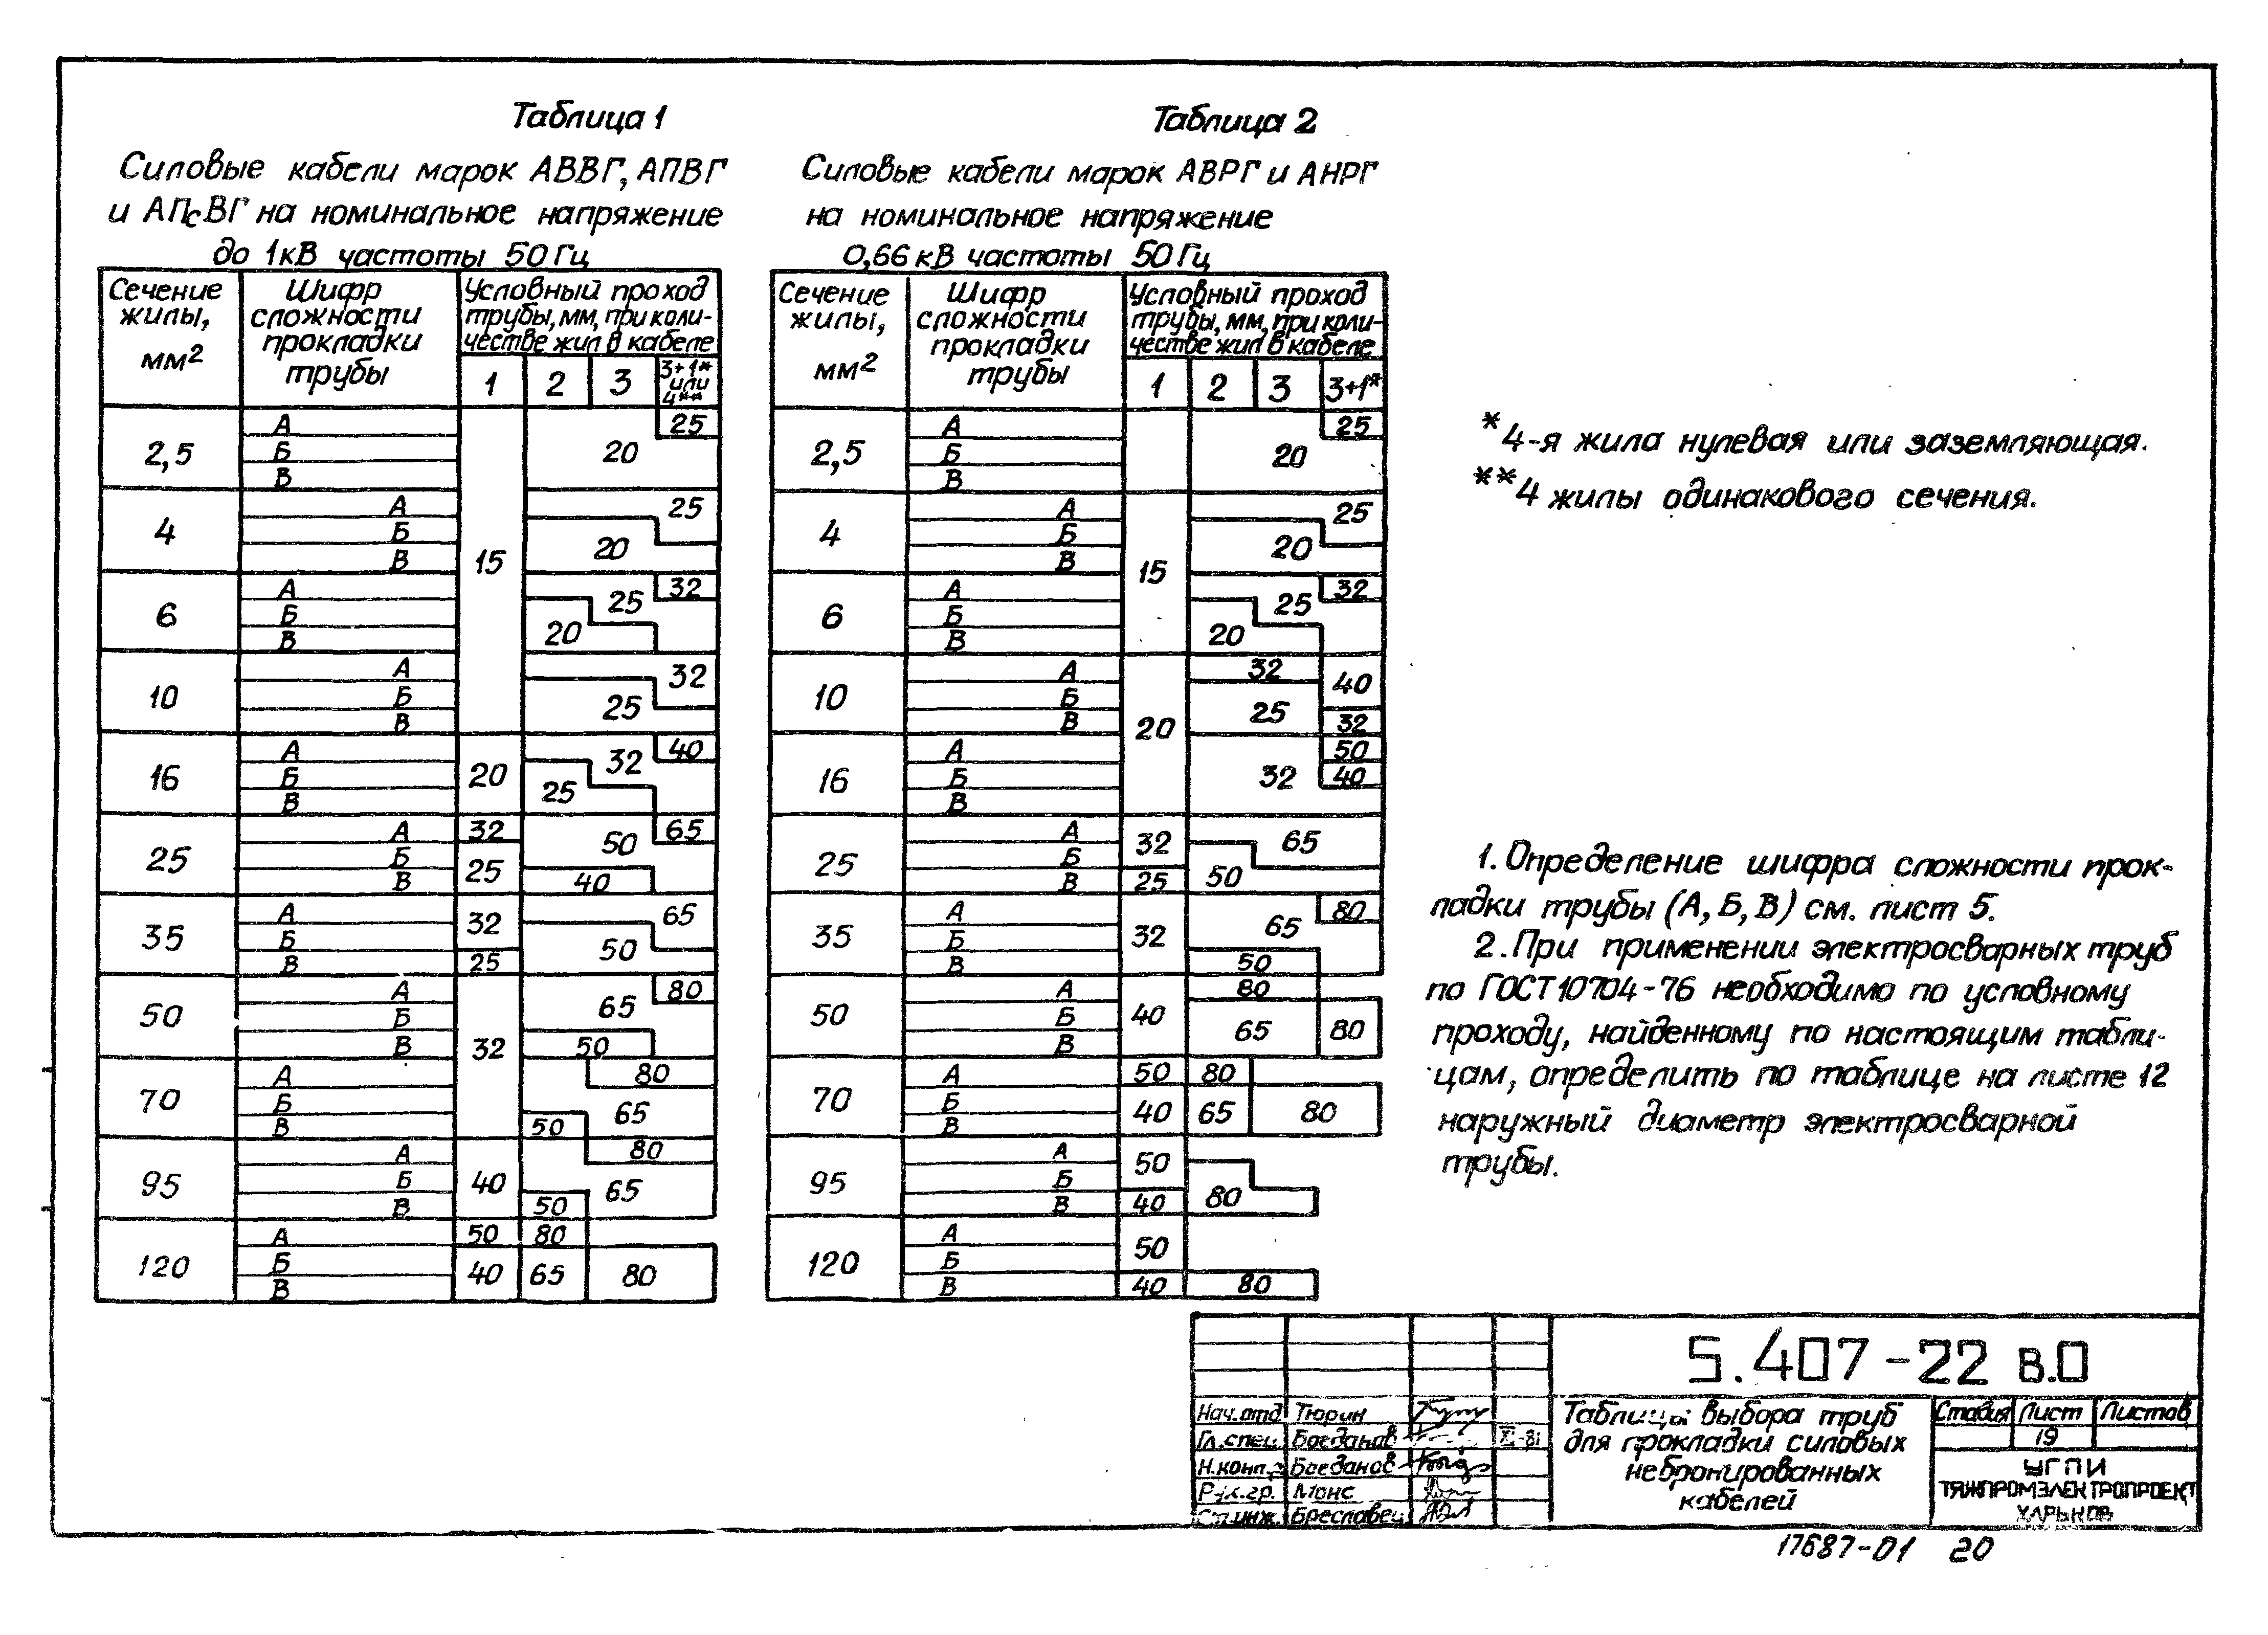 Таблица 1
Силовые кабели марок АВВГ, АПВГ
и АПсВГ на номинальное напряжение
до 1кВ частоты 50Гц
Сечение жилы, мм2
Шифр сложности прокладки трубы
Условный проход
трубы, мм, при коли-
честве жил в кабеле
1 2 3 3+1* или 4**
2,5 А Б В 20 25
4 А Б В 15 20 25
6 А Б В 20 25 32
10 А Б В 25 32
16 А Б В 20 25 32 40
25 А Б В 32 25 50 40 65
35 А Б В 32 25 50 65
50 А Б В 65 50 80
70 А Б В 32 50 80 65
95 А Б В 40 50 80 65
120 А Б В 50 40 80 65 80
Таблица 2
Силовые кабели марок АВРГ и АНРГ
на номинальное напряжение
0,66 кВ частоты 50Гц
Сечение жилы, мм2
Шифр сложности прокладки трубы
Условный проход
трубы, мм, при коли-
честве жил в кабеле
1 2 3 3+1*
2,5 А Б В 20 25
4 А Б В 15 20 25
6 А Б В 20 25 32
10 А Б В 20 32 25 40 32
16 А Б В 32 50 40
25 А Б В 32 25 50 65
35 А Б В 32 65 50 80
50 А Б В 40 80 65 80
70 А Б В 50 40 80 65 80
95 А Б В 50 40 80
120 А Б В 50 40 80
*4-я жила нулевая или заземляющая.
**4 жилы одинакового сечения.
1. Определение шифра сложности прок-
ладки трубы (А, Б, В) см. лист 5.
2. При применении электросварных труб
по ГОСТ 10704-76 необходимо по условному
проходу, найденному по настоящим табли-
цам, определить по таблице на листе 12
наружный диаметр электросварной
трубы.
5.407-22 в.0
Нач.отд Тюрин
Гл.спец. Богданов XI-81
Н.конп.р Богданов
Рук.гр. Монс
Ст.инж. Бреславец
Таблицы выбора труб
для прокладки силовых
небронированных
кабелей
Стадия Лист Листов
19
УГПИ
ТЯЖПРОМЭЛЕКТРОПРОЕКТ
ХАРЬКОВ
17687-01 20